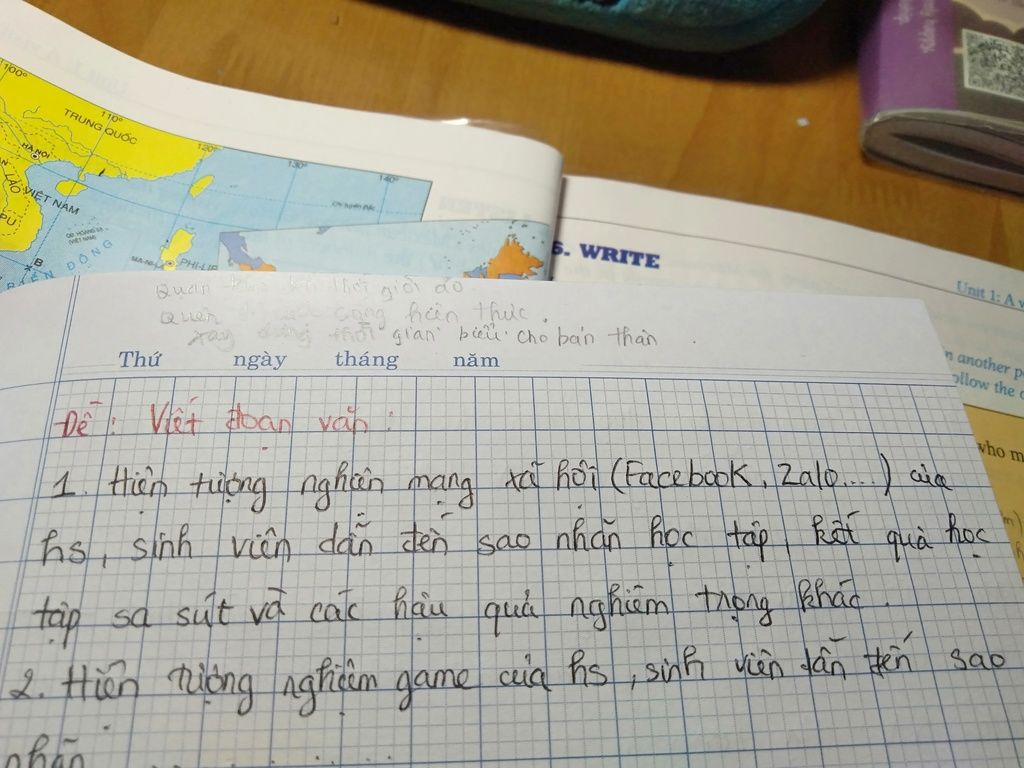 100°
110°
120°
130°
140°
TRUNG QUỐC
HÀ NỘI
LÀO
VIỆT NAM
PU
QĐ. HOÀNG SA
(VIỆT NAM)
B
BIỂN ĐÔNG
PHI-LIP
5. WRITE
Unit 1: A
n another p
ollow the
who m
Quan thế giới ảo
Quên cộng hiện thực.
xây dựng thời gian biểu cho bản thân.
Thứ ngày tháng năm
Đề: Viết đoạn văn:
1. Hiện tượng nghiện mạng xã hội (Facebook, Zalo....) của
hs, sinh viên dẫn đến sao nhãn học tập, kết quả học
tập sa sút và các hậu quả nghiêm trọng khác.
2. Hiện tượng nghiệm game của hs, sinh viên dẫn đến sao
nhãn